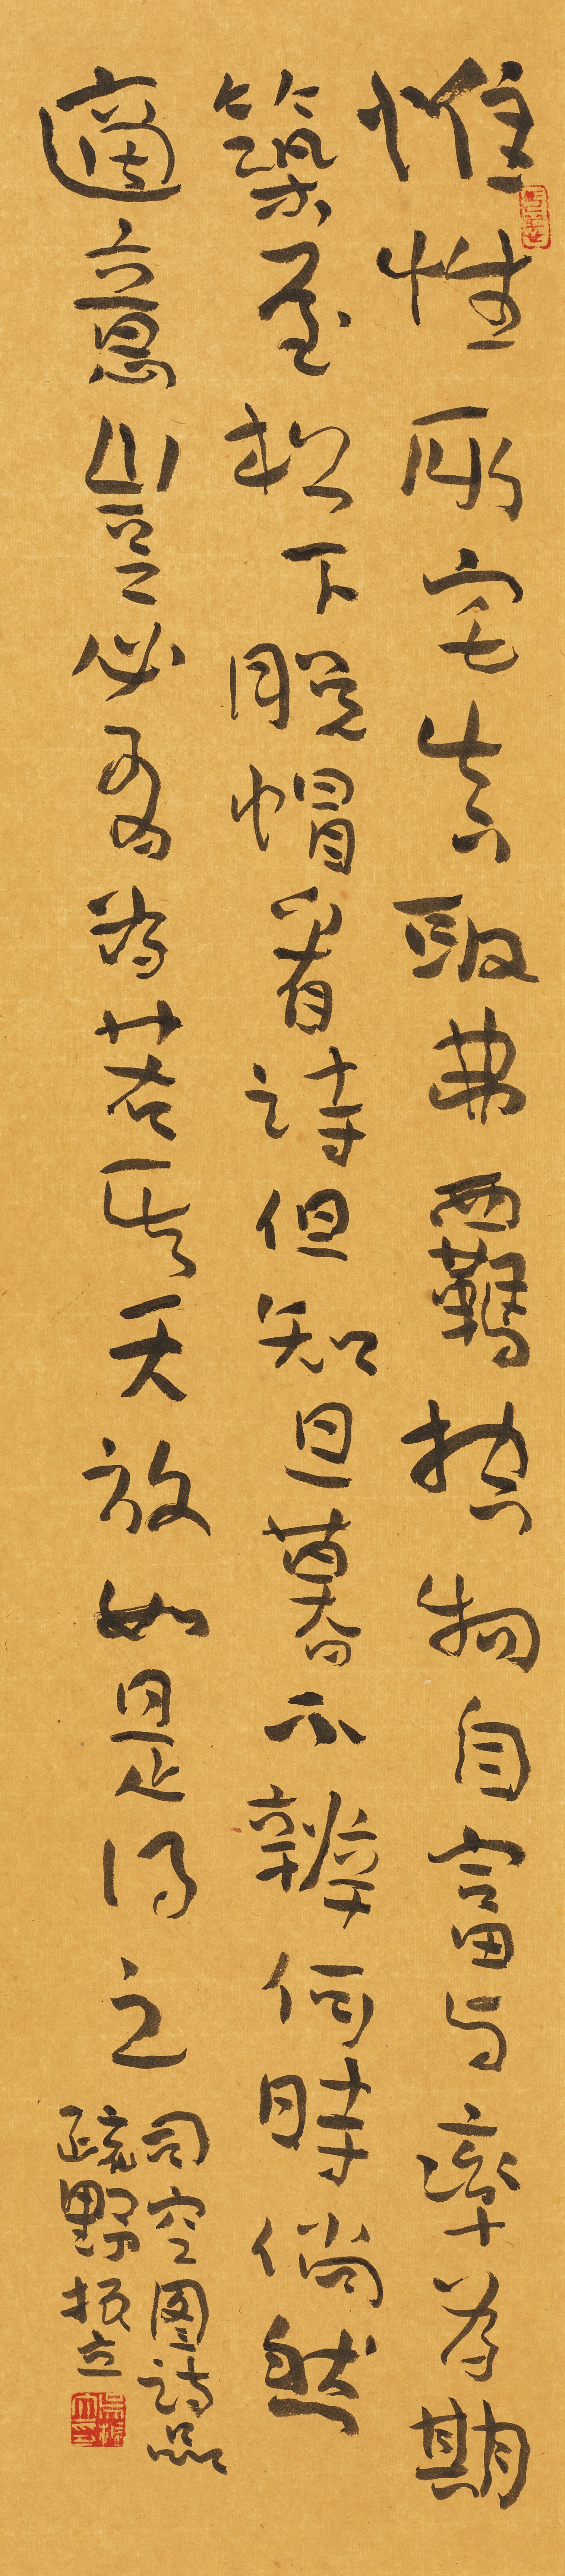 惟性所宅真取弗羈控物自富与率為期
築屋松下脱帽看詩但知旦暮不辨何時倘然
適意豈必有為若其天放如是得之
司空图詩品
疏野振立